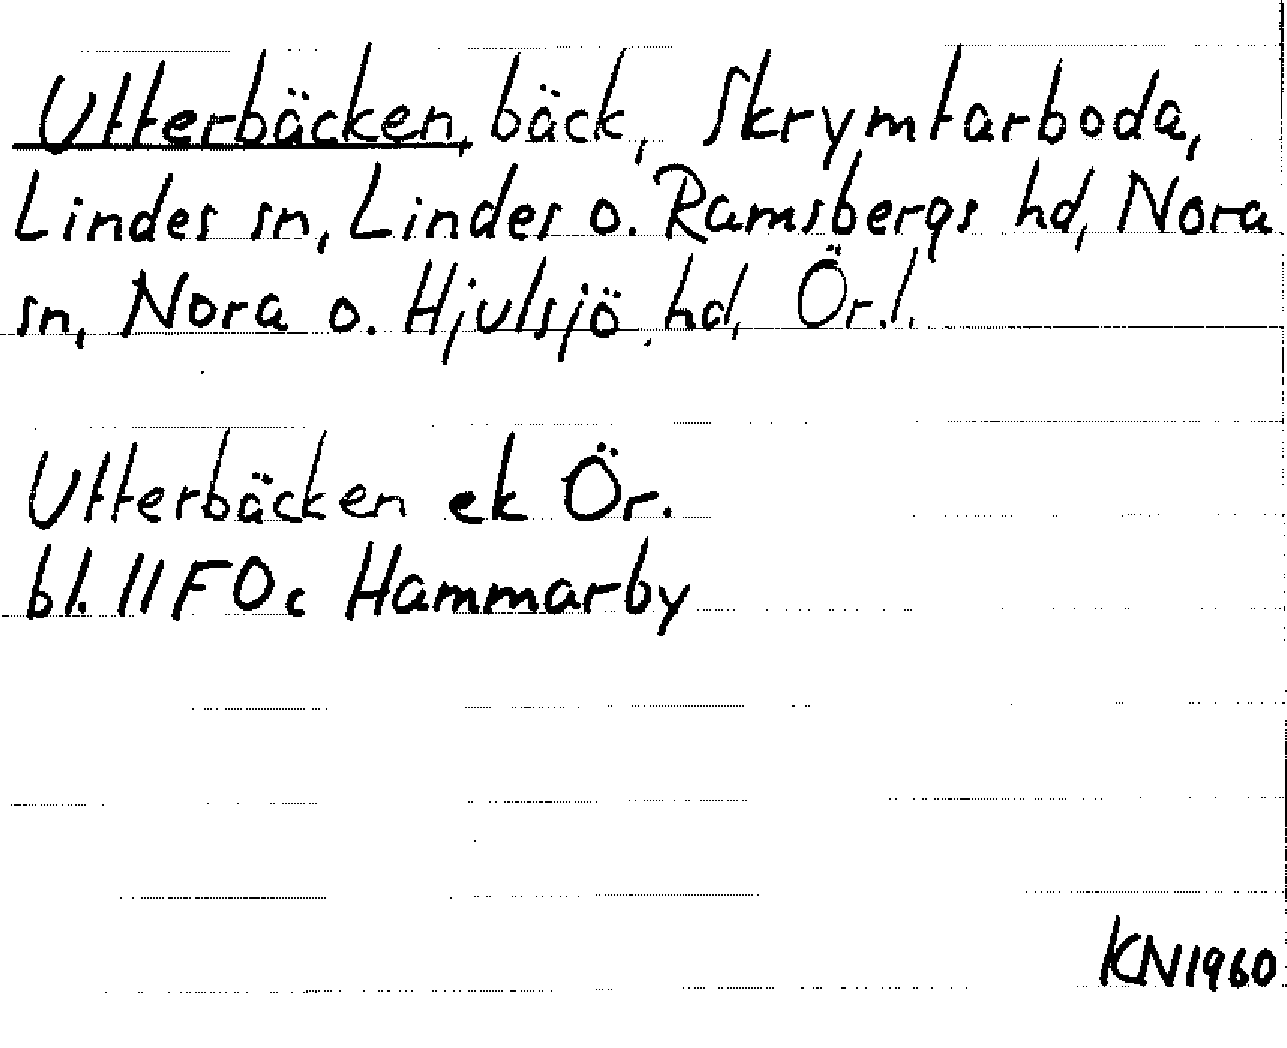 Utterbäcken, bäck, Skrymtarboda,
Lindes sn, Lindes o. Ramsbergs hd, Nora
sn, Nora o. Hjulsjö hd, Ör.l.
Utterbäcken ek Ör.
bl. 11 F O c Hammarby
KN1960